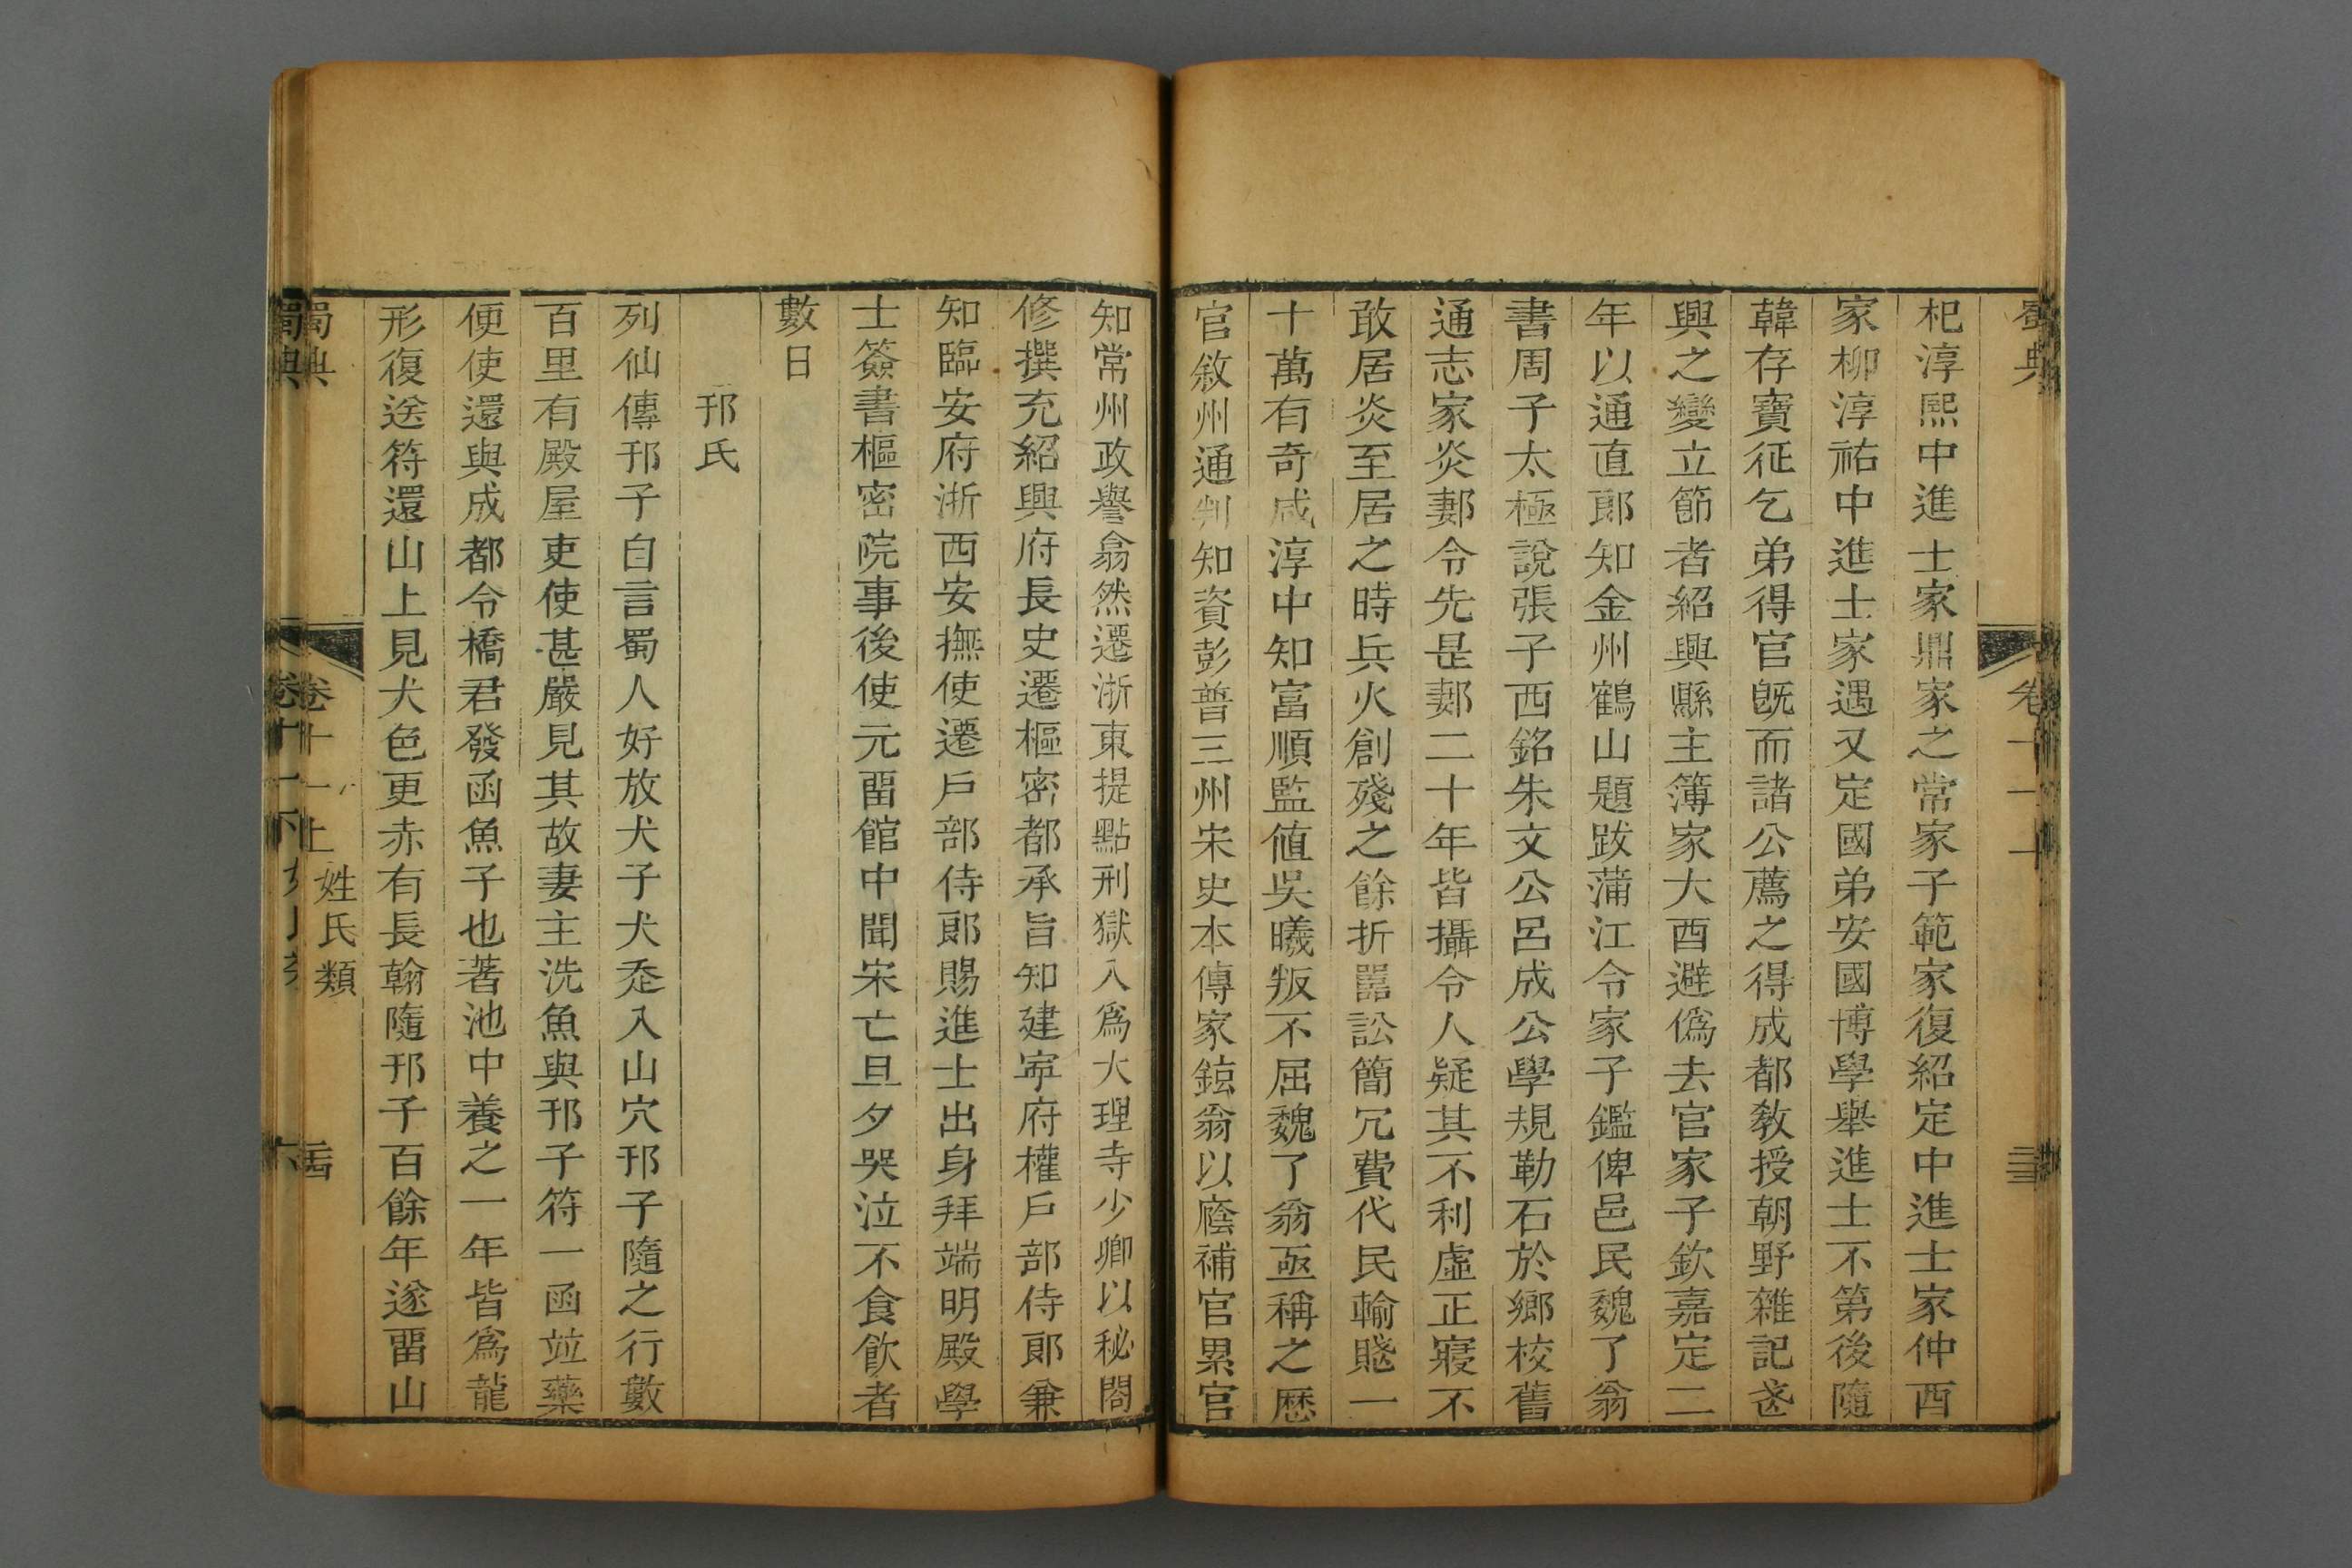 蜀典
卷十一上
杞淳熙中進士家鼎家之常家子範家復紹定中進士家仲酉
家柳淳祐中進士家遇又定國弟安國博學舉進士不第後隨
韓存寶征乞弟得官旣而諸公薦之得成都敎授朝野雜記
興之變立節者紹興縣主簿家大酉避僞去官家子欽嘉定二
年以通直郎知金州鶴山題跋蒲江令家子鑑俾邑民魏了翁
書周子太極說張子西銘朱文公呂成公學規勒石於鄉校舊
通志家炎郪令先是郪二十年皆攝令人疑其不利虛正寢不
敢居炎至居之時兵火創殘之餘折嚚訟簡冗費代民輸賤一
十萬有奇咸淳中知富順監値吳曦叛不屈魏了翁亟稱之歷
官敘州通判知資彭普三州宋史本傳家鉉翁以廕補官累官
知常州政譽翕然遷浙東提點刑獄入爲大理寺少卿以秘閣
修撰充紹興府長史遷樞密都承旨知建寧府權戶部侍郎兼
知臨安府浙西安撫使遷戶部侍郎賜進士出身拜端明殿學
士簽書樞密院事後使元畱館中聞宋亡旦夕哭泣不食飮者
數日
邘氏
列仙傳邘子自言蜀人好放犬子犬走入山穴邘子隨之行數
百里有殿屋吏使甚嚴見其故妻主洗魚與邘子符一函竝藥
便使還與成都令橋君發函魚子也著池中養之一年皆爲龍
形復送符還山上見犬色更赤有長翰隨邘子百餘年遂畱山
蜀典
卷十一上
姓氏類
蜀典
卷十一下